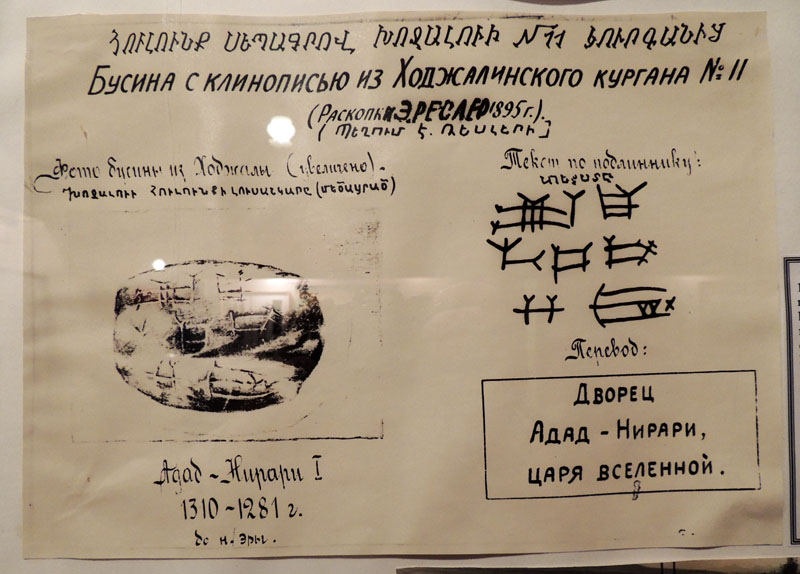 ՀՈՒԼՈՒՆՔ ՍԵՊԱԳՐՈՎ ԽՈՋԱԼՈՒԻ №11 ԿՈՒՐԳԱՆԻՑ
БУСИНА С КЛИНОПИСЬЮ ИЗ ХОДЖАЛИНСКОГО КУРГАНА № II
(РАСКОПКИ Э.РЕСЛЕР 1895 г.).
(ՊԵՂՈՒՄ Է. ՌԵՍԼԵՐԻ)
Фото бусины из Ходжалы (увеличено).
ԽՈՋԱԼՈՒԻ ՀՈՒԼՈՒՆՔԻ ԼՈՒՍԱՆԿԱՐԸ (ՄԵԾԱՑՐԱԾ)
Текст по подлиннику:
ՏԵՔՍՏԸ
Перевод:
ДВОРЕЦ
АДАД - НИРАРИ,
ЦАРЯ ВСЕЛЕННОЙ.
Адад - Нирари I
1310-1281 г.
до н./эры.